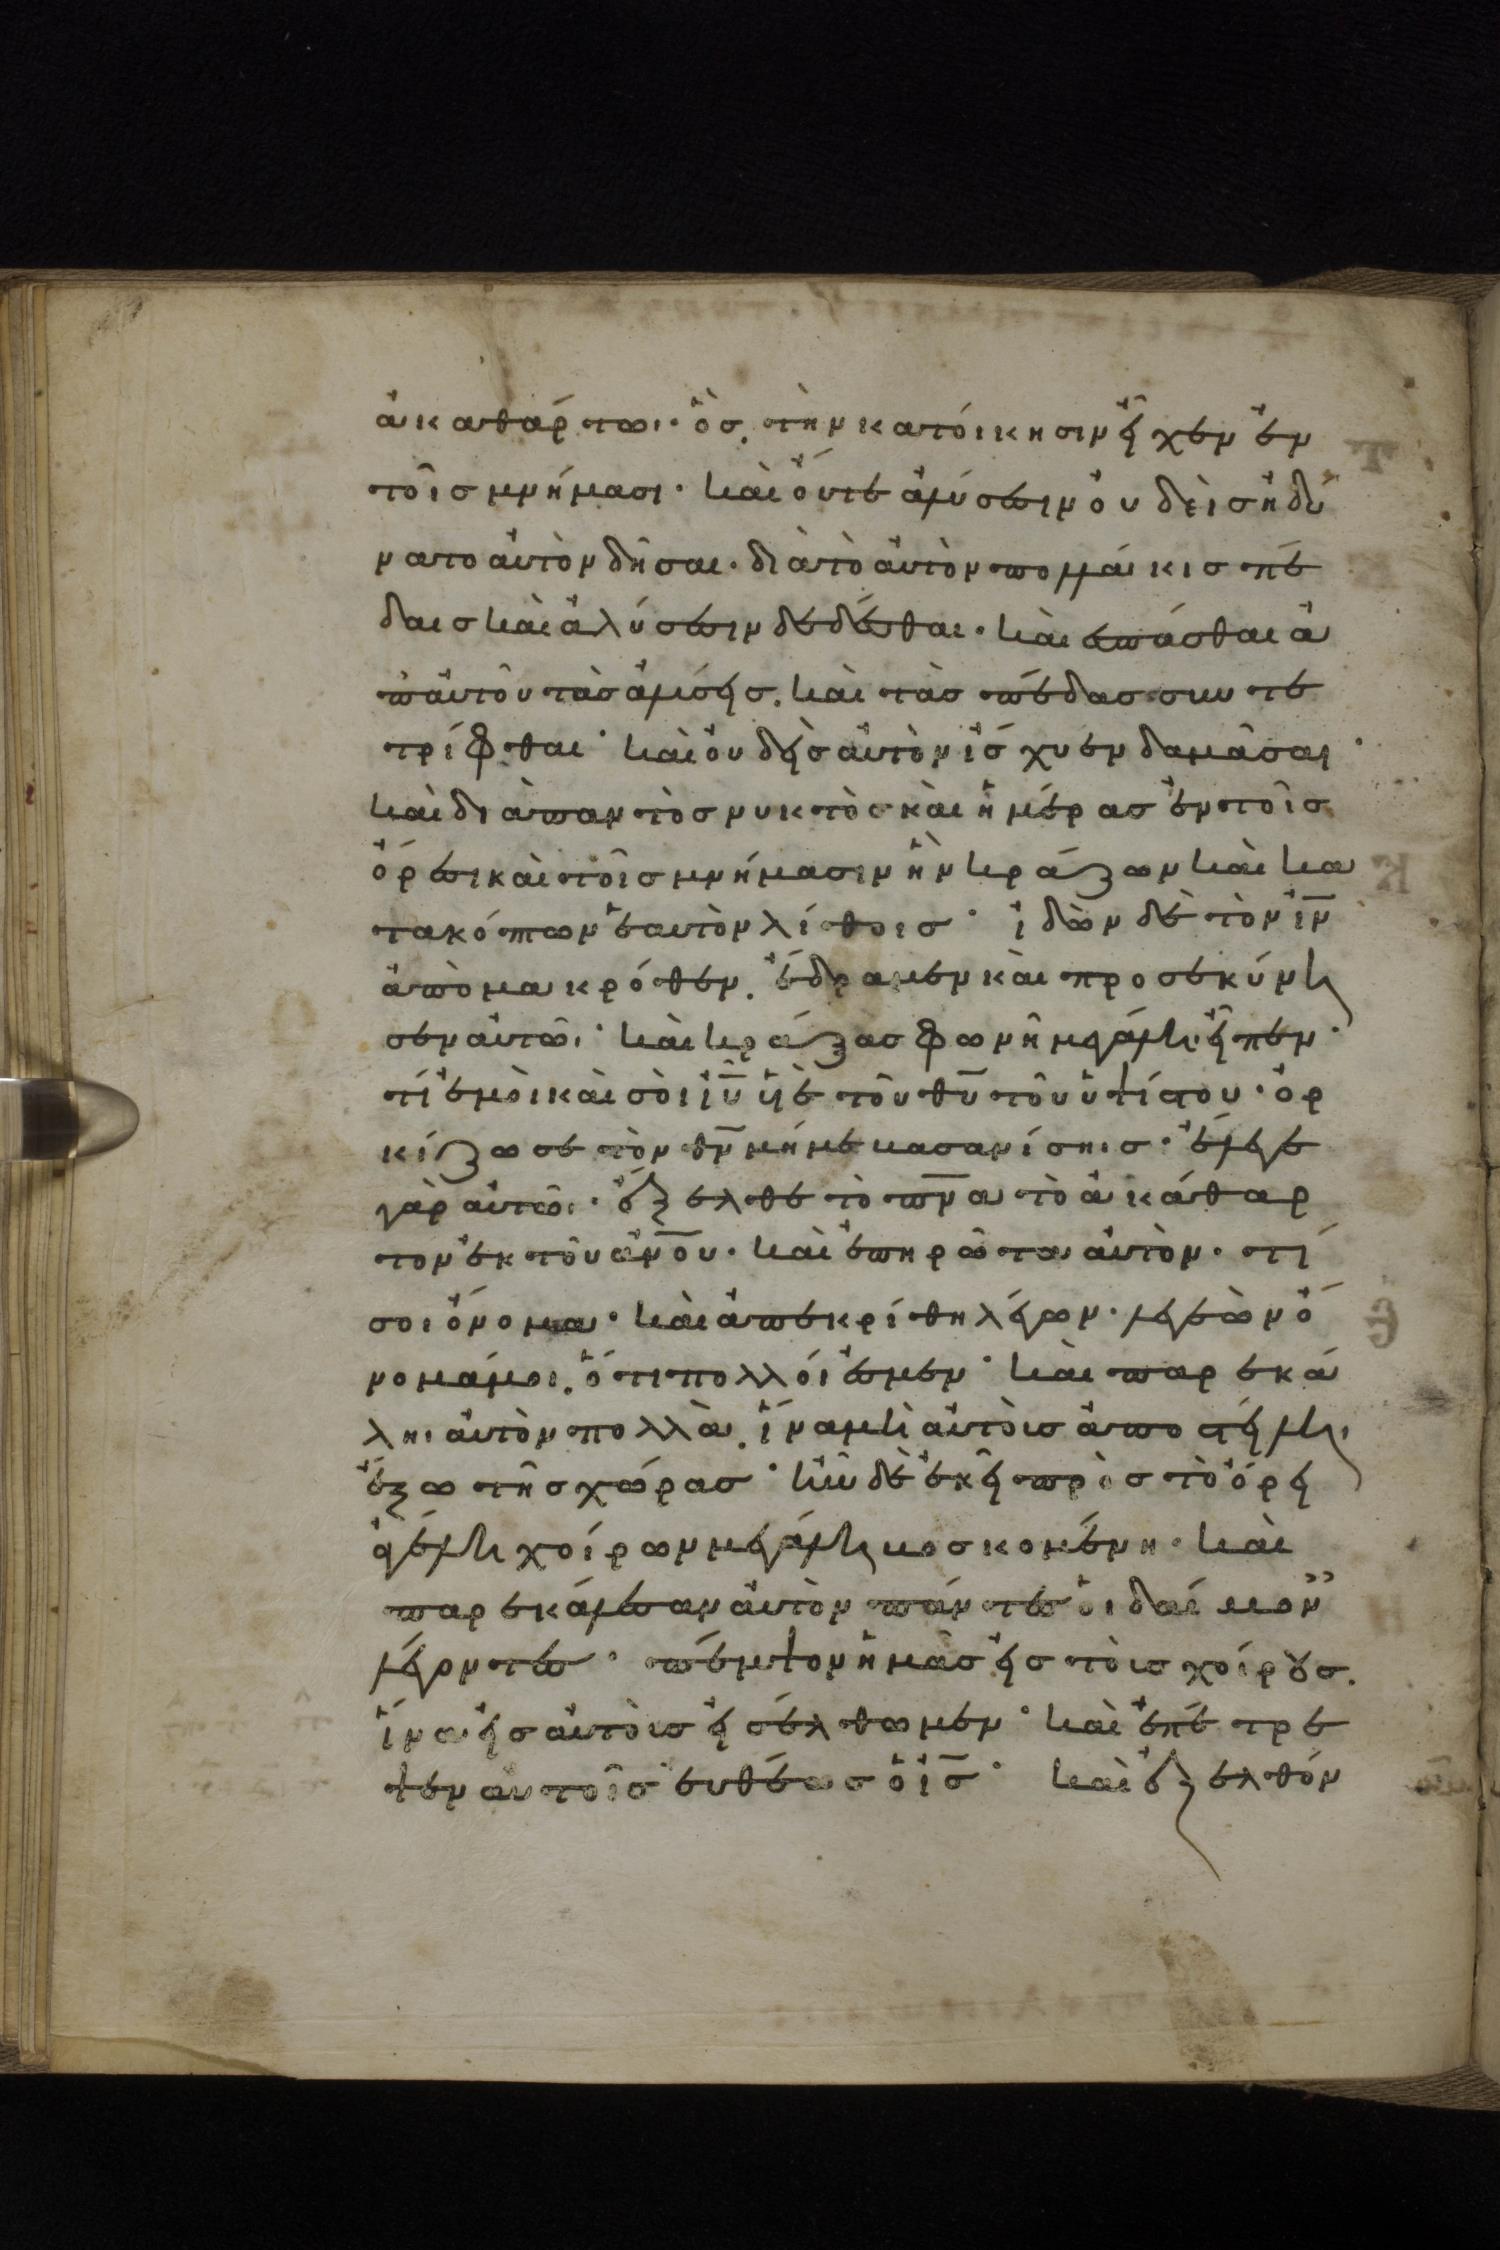 ἀκαθάρτωι· ὃσ, τὴν κατόικησιν ἔιχεν ἐν
τοῖσ μνήμασι· καὶ ὄυτε ἁλύσεσιν ὀυδεὶσ ἠδύ
νατο ἀυτὸν δῆσαι· διὰ τὸ ἀυτὸν πολλάκισ πέ
δαισ καὶ ἁλύσεσιν δεδέσθαι· καὶ διεσπάσθαι ὑ
π' ἀυτοῦ τὰσ ἁλύσεισ, καὶ τὰσ πέδασ συντε
τρίφθαι· καὶ ὀυδεὶσ ἀυτὸν ἴσχυεν δαμᾶσαι·
καὶ διὰ παντὸσ νυκτὸσ καὶ ἡμέρασ ἐν τοῖσ
ὄρεσι καὶ τοῖσ μνήμασιν ἦν κράζων καὶ κα
τακόπτων ἑαυτὸν λίθοισ· ἰδὼν δὲ τὸν ἰν
ἀπὸ μακρόθεν, ἔδραμεν καὶ προσεκύνη
σεν ἀυτῶι· καὶ κράξασ φωνῆ μεγάλη, εἶπεν·
τί ἐμοὶ καὶ σοὶ ἰυ υἱὲ τοῦ θυ τοῦ ὑψίστου· ὁρ
κίζω σε τὸν θν μή με βασανίσηισ· ἔλεγε
γὰρ ἀυτῶι· ἔξελθε τὸ πνα τὸ ἀκάθαρ
τον ἐκ τοῦ ἀνου· καὶ ἐπηρώτα ἀυτὸν· τί
σοι ὄνομα· καὶ ἀπεκρίθη λέγων· λεγεὼν ὄ
νομά μοι, ὅτι πολλοί ἐσμεν· καὶ παρεκά
λει ἀυτὸν πολλὰ, ἵνα μὴ ἀυτοὺσ ἀποστείλη
ἔξω τῆσ χώρασ· ἦν δὲ ἐκεῖ πρὸσ τὸ ὄρει
ἀγέλη χοίρων μεγάλη βοσκομένη· καὶ
παρεκάλεσαν ἀυτὸν πάντεσ ὁι δαίμον
λέγοντεσ· πέμψον ἡμᾶσ εἰσ τοὺσ χοίρουσ,
ἵνα εἰσ ἀυτοὺσ εἰσέλθωμεν· καὶ ἐπέτρε
ψεν αυτοῖσ ευθέωσ ὁ ἰσ· καὶ ἐξελθόν